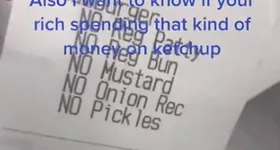 Also I want to know if your
rich spending that kind of
money on ketchup
NO Reg Patty
NO Reg Bun
NO Mustard
NO Onion Rec
NO Pickles